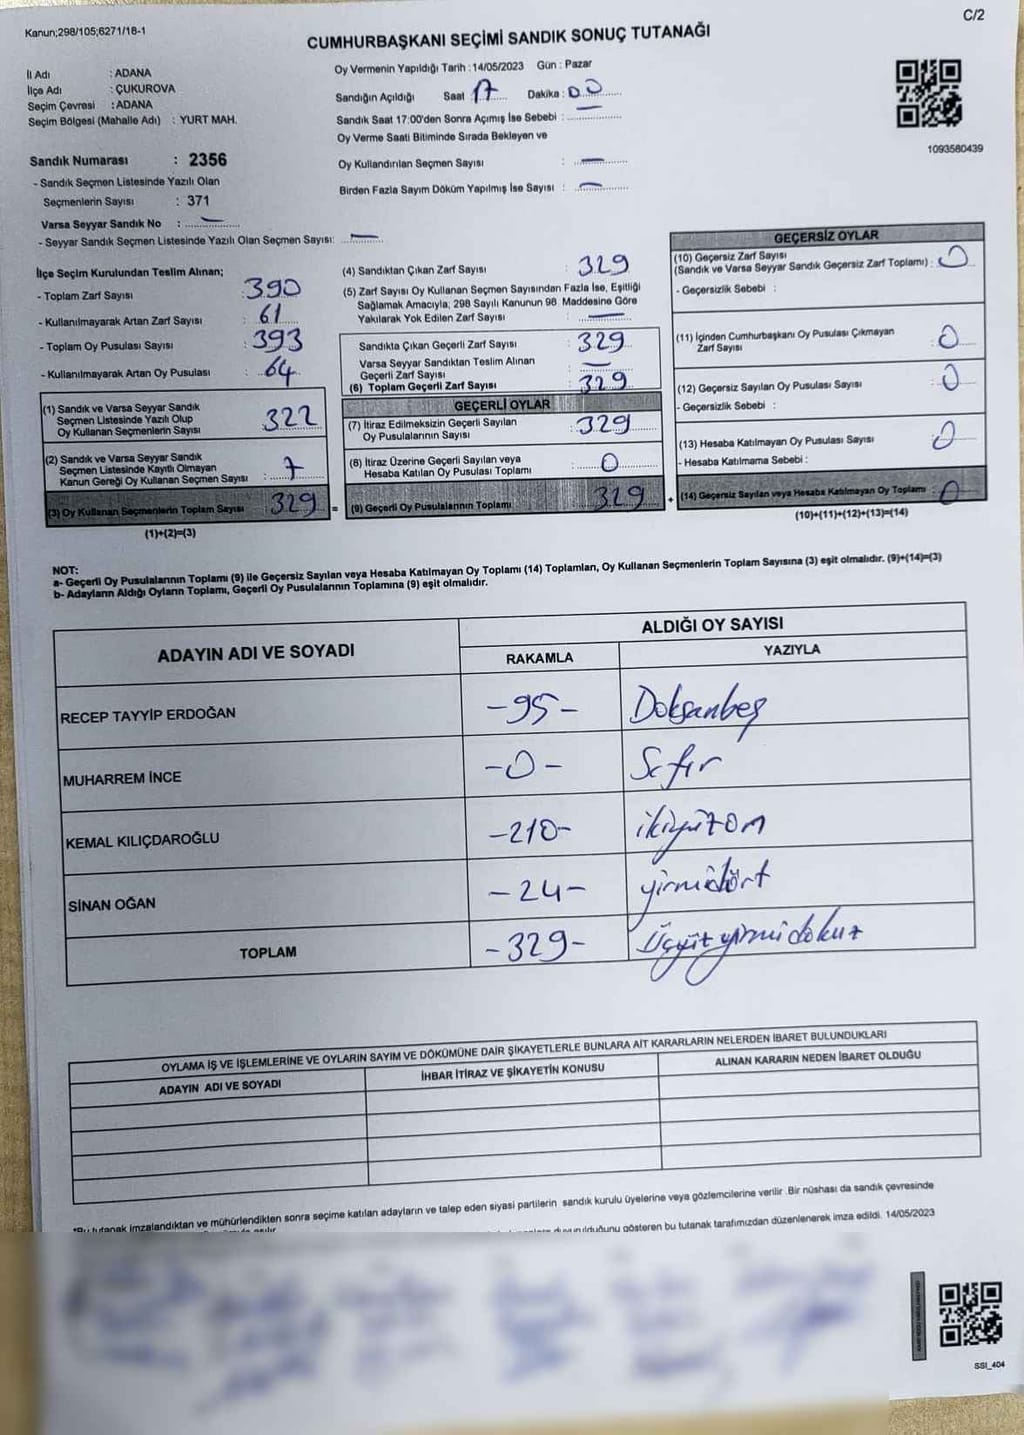 Kanun;298/105;6271/18-1
C/2
CUMHURBAŞKANI SEÇİMİ SANDIK SONUÇ TUTANAĞI
İl Adı : ADANA
İlçe Adı : ÇUKUROVA
Seçim Çevresi : ADANA
Seçim Bölgesi (Mahalle Adı) : YURT MAH.
Sandık Numarası : 2356
- Sandık Seçmen Listesinde Yazılı Olan
Seçmenlerin Sayısı : 371
Varsa Seyyar Sandık No : —
- Seyyar Sandık Seçmen Listesinde Yazılı Olan Seçmen Sayısı: —
Oy Vermenin Yapıldığı Tarih : 14/05/2023 Gün : Pazar
Sandığın Açıldığı Saat : 17 Dakika : 00
Sandık Saat 17:00'den Sonra Açımış İse Sebebi : —
Oy Verme Saati Bitiminde Sırada Bekleyen ve
Oy Kullandırılan Seçmen Sayısı : —
Birden Fazla Sayım Döküm Yapılmış İse Sayısı : —
1093580439
İlçe Seçim Kurulundan Teslim Alınan;
- Toplam Zarf Sayısı : 390
- Kullanılmayarak Artan Zarf Sayısı : 61
- Toplam Oy Pusulası Sayısı : 393
- Kullanılmayarak Artan Oy Pusulası : 64
(1) Sandık ve Varsa Seyyar Sandık
Seçmen Listesinde Yazılı Olup
Oy Kullanan Seçmenlerin Sayısı : 322
(2) Sandık ve Varsa Seyyar Sandık
Seçmen Listesinde Kayıtlı Olmayan
Kanun Gereği Oy Kullanan Seçmen Sayısı : 7
(3) Oy Kullanan Seçmenlerin Toplam Sayısı 329 =
(1)+(2)=(3)
(4) Sandıktan Çıkan Zarf Sayısı : 329
(5) Zarf Sayısı Oy Kullanan Seçmen Sayısından Fazla İse, Eşitliği
Sağlamak Amacıyla; 298 Sayılı Kanunun 98. Maddesine Göre
Yakılarak Yok Edilen Zarf Sayısı : —
Sandıkta Çıkan Geçerli Zarf Sayısı : 329
Varsa Seyyar Sandıktan Teslim Alınan
Geçerli Zarf Sayısı : —
(6) Toplam Geçerli Zarf Sayısı : 329
GEÇERLİ OYLAR
(7) İtiraz Edilmeksizin Geçerli Sayılan
Oy Pusulalarının Sayısı : 329
(8) İtiraz Üzerine Geçerli Sayılan veya
Hesaba Katılan Oy Pusulası Toplamı : 0
(9) Geçerli Oy Pusulalarının Toplamı 329 +
GEÇERSİZ OYLAR
(10) Geçersiz Zarf Sayısı
(Sandık ve Varsa Seyyar Sandık Geçersiz Zarf Toplamı) : 0
- Geçersizlik Sebebi :
(11) İçinden Cumhurbaşkanı Oy Pusulası Çıkmayan
Zarf Sayısı : 0
(12) Geçersiz Sayılan Oy Pusulası Sayısı : 0
- Geçersizlik Sebebi :
(13) Hesaba Katılmayan Oy Pusulası Sayısı : 0
- Hesaba Katılmama Sebebi :
(14) Geçersiz Sayılan veya Hesaba Katılmayan Oy Toplamı : 0
(10)+(11)+(12)+(13)=(14)
NOT:
a- Geçerli Oy Pusulalarının Toplamı (9) ile Geçersiz Sayılan veya Hesaba Katılmayan Oy Toplamı (14) Toplamları, Oy Kullanan Seçmenlerin Toplam Sayısına (3) eşit olmalıdır. (9)+(14)=(3)
b- Adayların Aldığı Oyların Toplamı, Geçerli Oy Pusulalarının Toplamına (9) eşit olmalıdır.
ADAYIN ADI VE SOYADI
ALDIĞI OY SAYISI
RAKAMLA YAZIYLA
RECEP TAYYİP ERDOĞAN -95- Doksanbeş
MUHARREM İNCE -0- Sıfır
KEMAL KILIÇDAROĞLU -210- ikiyüzon
SİNAN OĞAN -24- yirmidört
TOPLAM -329- Üçyüzyirmidokuz
OYLAMA İŞ VE İŞLEMLERİNE VE OYLARIN SAYIM VE DÖKÜMÜNE DAİR ŞİKAYETLERLE BUNLARA AİT KARARLARIN NELERDEN İBARET BULUNDUKLARI
ADAYIN ADI VE SOYADI İHBAR İTİRAZ VE ŞİKAYETİN KONUSU ALINAN KARARIN NEDEN İBARET OLDUĞU
*Bu tutanak imzalandıktan ve mühürlendikten sonra seçime katılan adayların ve talep eden siyasi partilerin sandık kurulu üyelerine veya gözlemcilerine verilir .Bir nüshası da sandık çevresinde
duyurulduğunu gösteren bu tutanak tarafımızdan düzenlenerek imza edildi. 14/05/2023
SSI_404